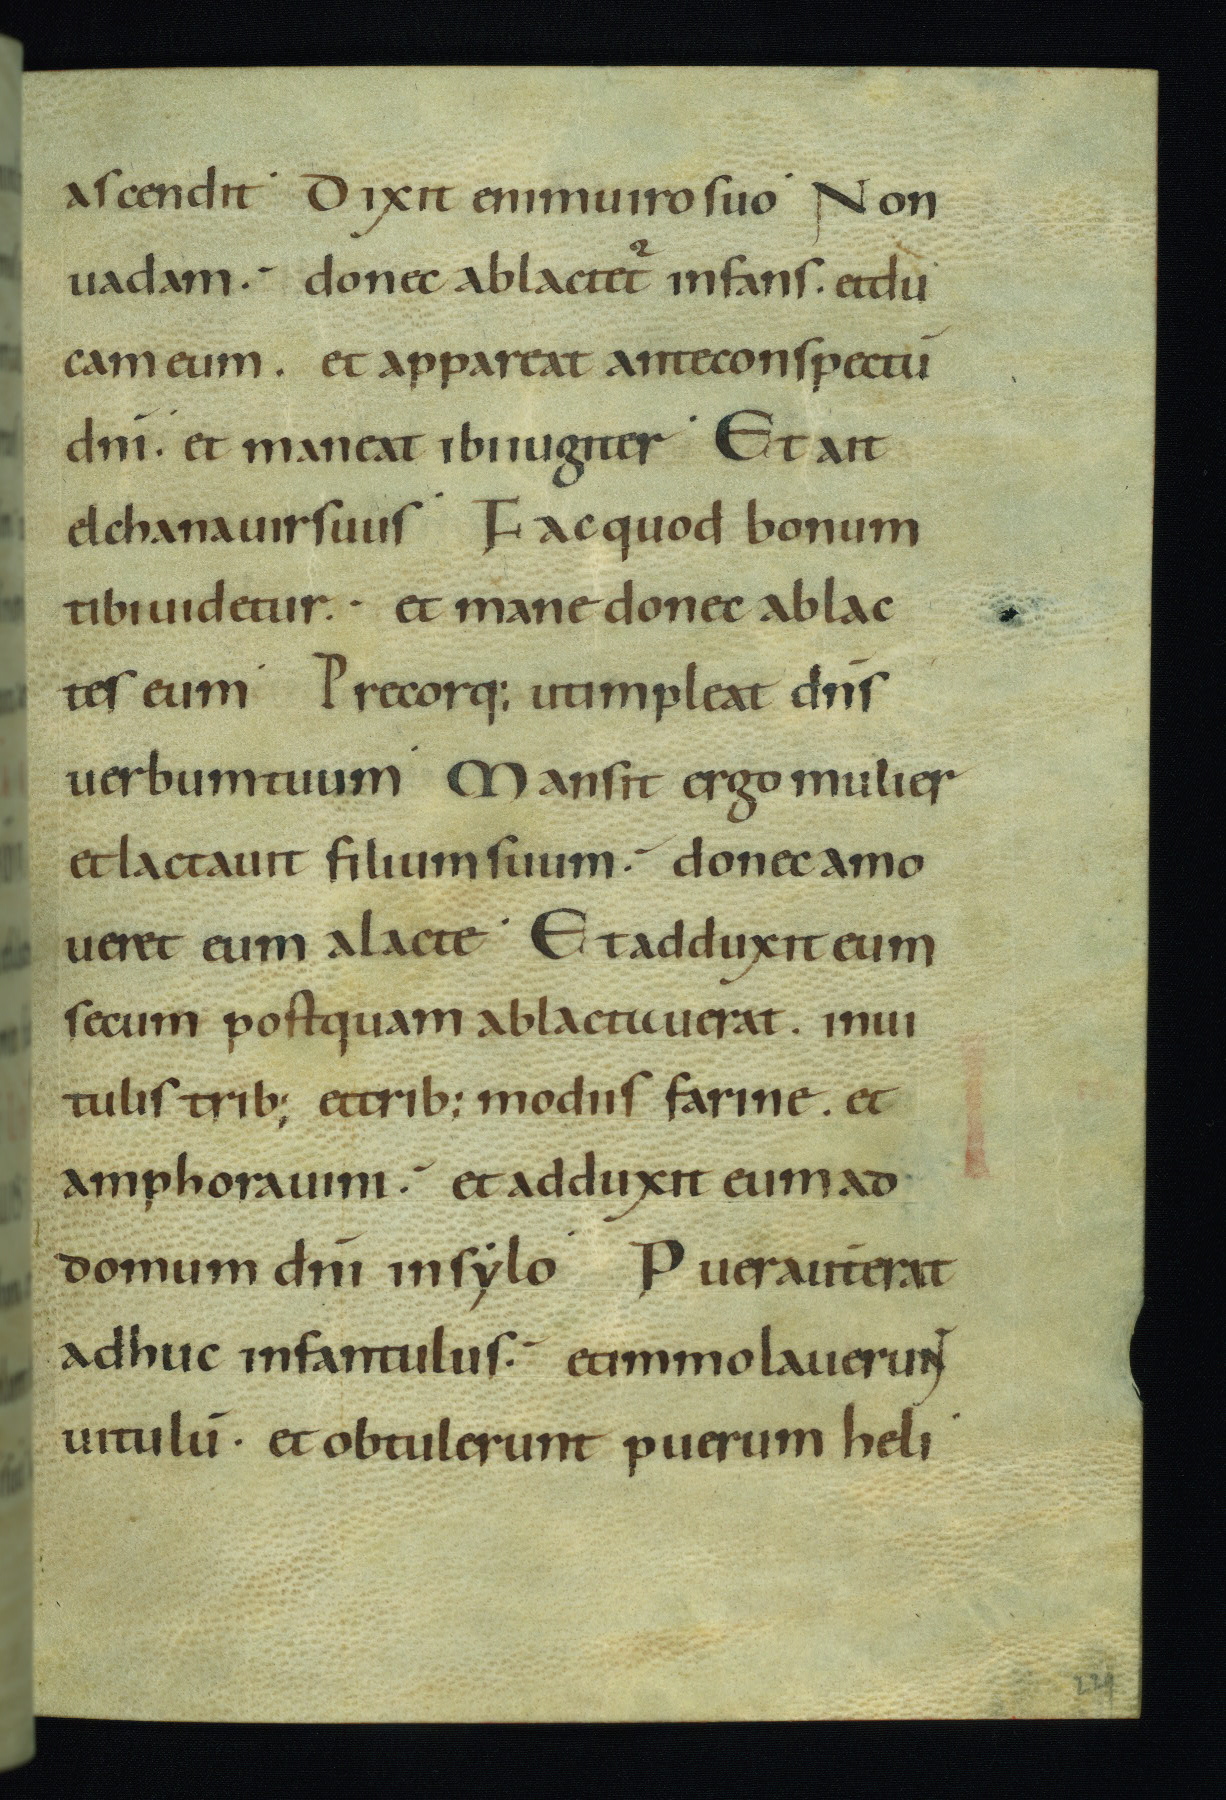 ascendit· Dixit enim uiro suo· Non
uadam.- donec ablactet᷑ infans. et du
cam eum. et appareat ante conspectū
dnī. et maneat ibi iugiter· Et ait
elchana uir suus· Fac quod bonum
tibi uidetur.- et mane donec ablac
tes eum· Precorq; ut impleat dn̄s
uerbum tuum· Mansit ergo mulier
et lactauit filium suum.- donec amo
ueret eum a lacte· Et adduxit eum
secum postquam ablactauerat. in ui
tulis trib; et trib; modiis farine. et
amphora uini.- et adduxit eum ad
domum dnī in sẏlo· Puer aut̄ erat
adhuc infantulus.- et immolauerunt
uitulū. et obtulerunt puerum heli·
229